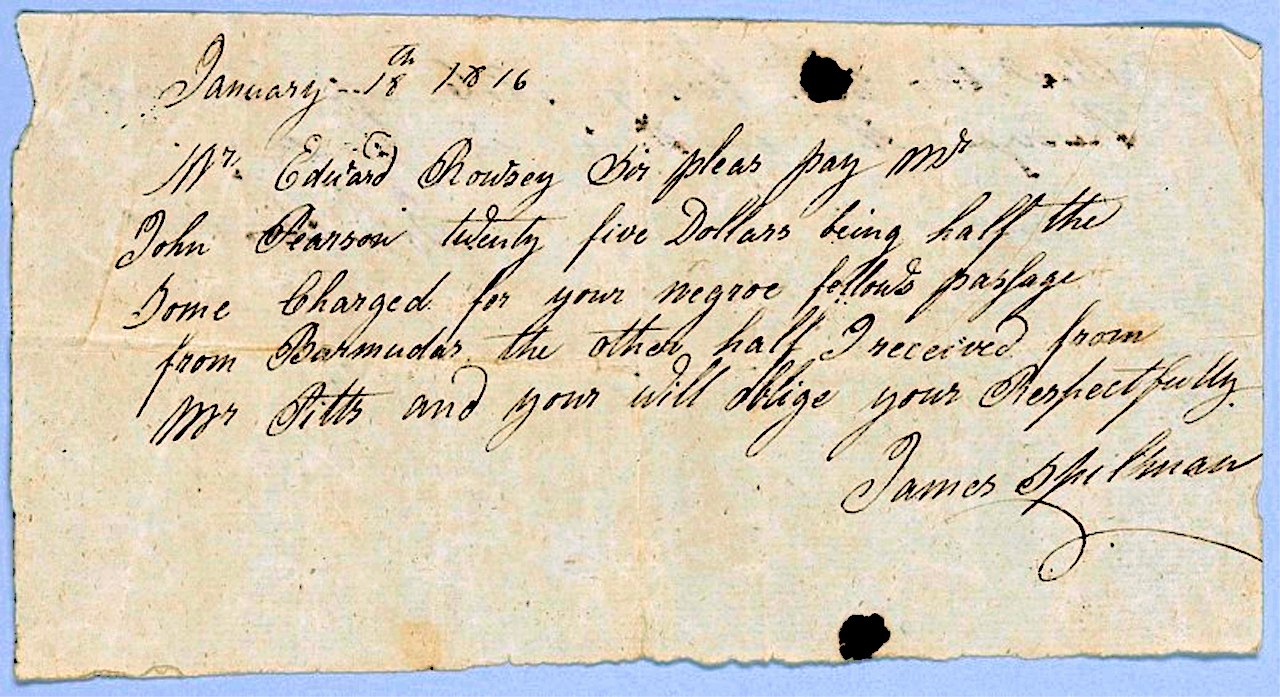 January 18th 1816
Mr. Edward Rowsey Sir pleas pay Mr
John Pearson twenty five Dollars being half the
Some Charged for your negroe fellows passage
from Barmudas the other half I received from
Mr Pitts and your will oblige your Respectfully
James Spilman